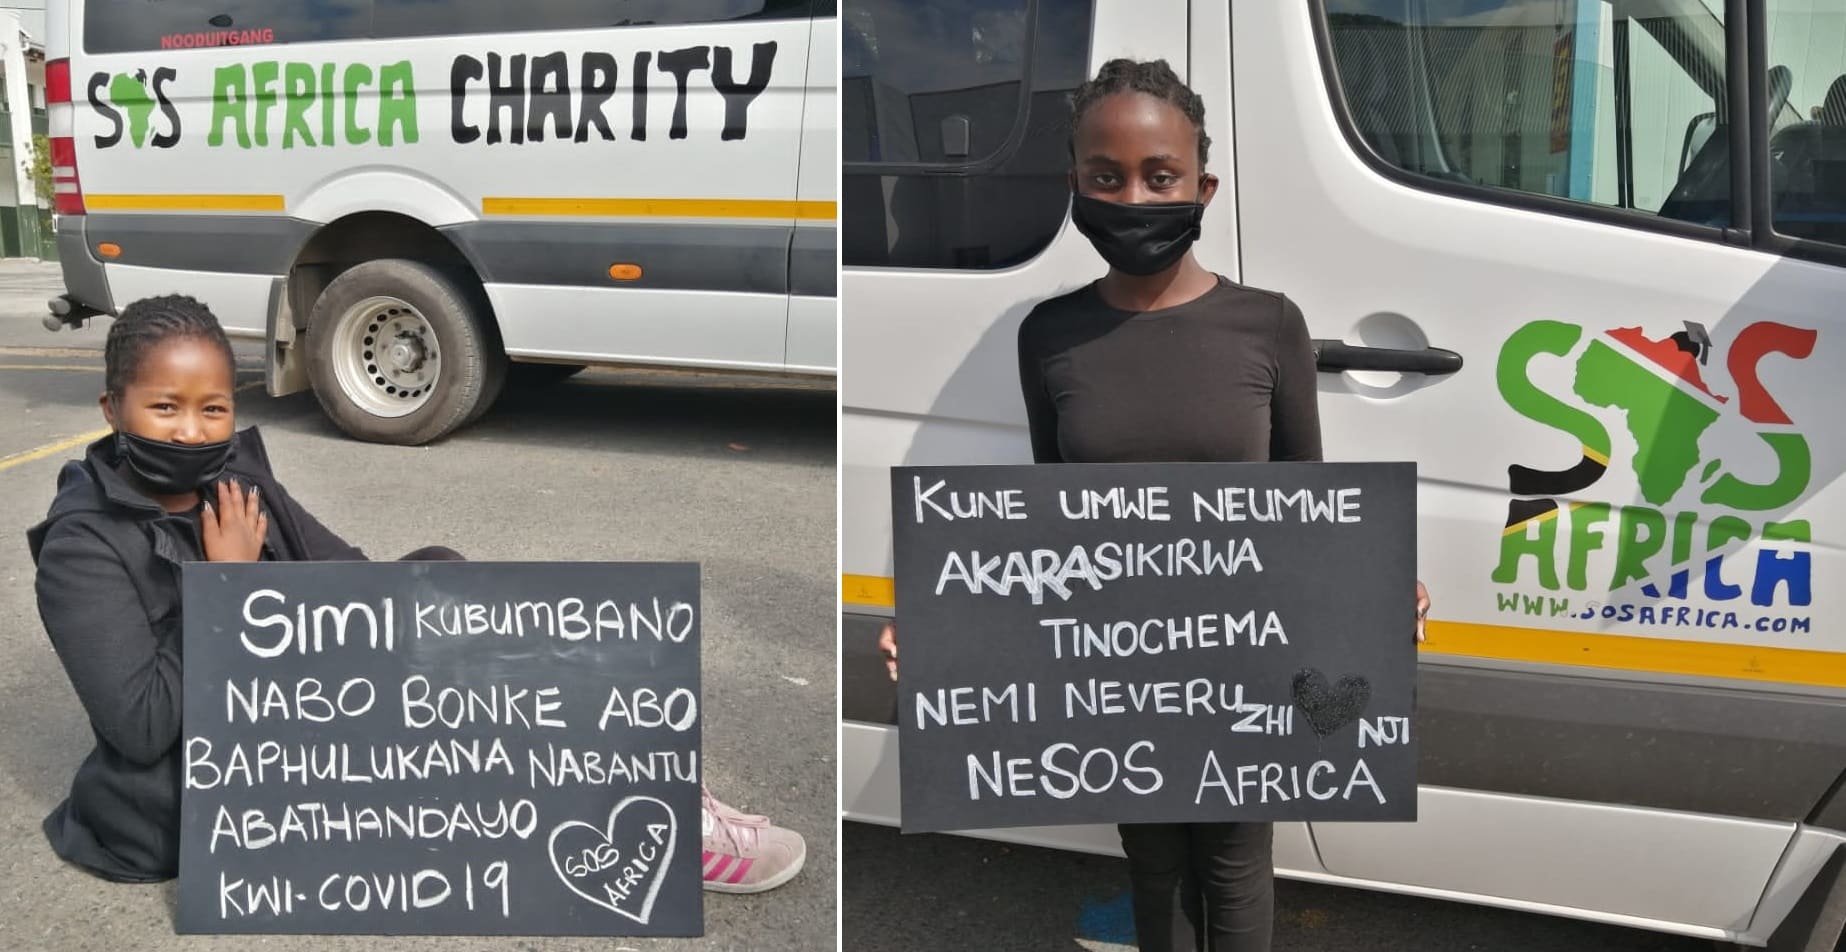 NOODUITGANG
SOS AFRICA CHARITY
SIMI KUBUMBANO
NABO BONKE ABO
BAPHULUKANA NABANTU
ABATHANDAYO
KWI-COVID19
SOS
AFRICA
KUNE UMWE NEUMWE
AKARASIKIRWA
TINOCHEMA
NEMI NEVERUZHINJI
NESOS AFRICA
SOS
AFRICA
WWW.SOSAFRICA.COM